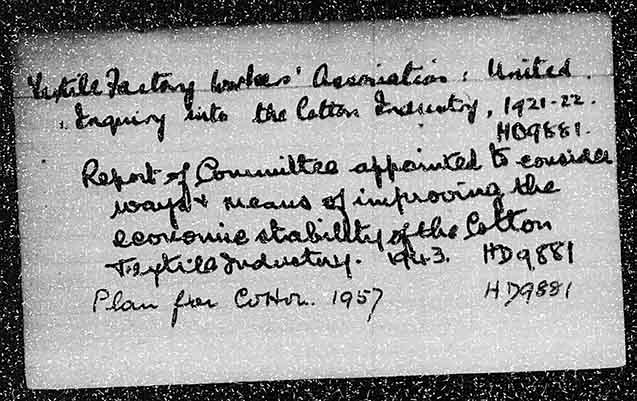 Textile Factory Workers' Association, United.
Inquiry into the Cotton Industry, 1921-22.
HD9881.
Report of Committee appointed to consider
ways + means of improving the
economic stability of the Cotton
Textile Industry. 1943. HD9881
Plan for Cotton. 1957 HD9881